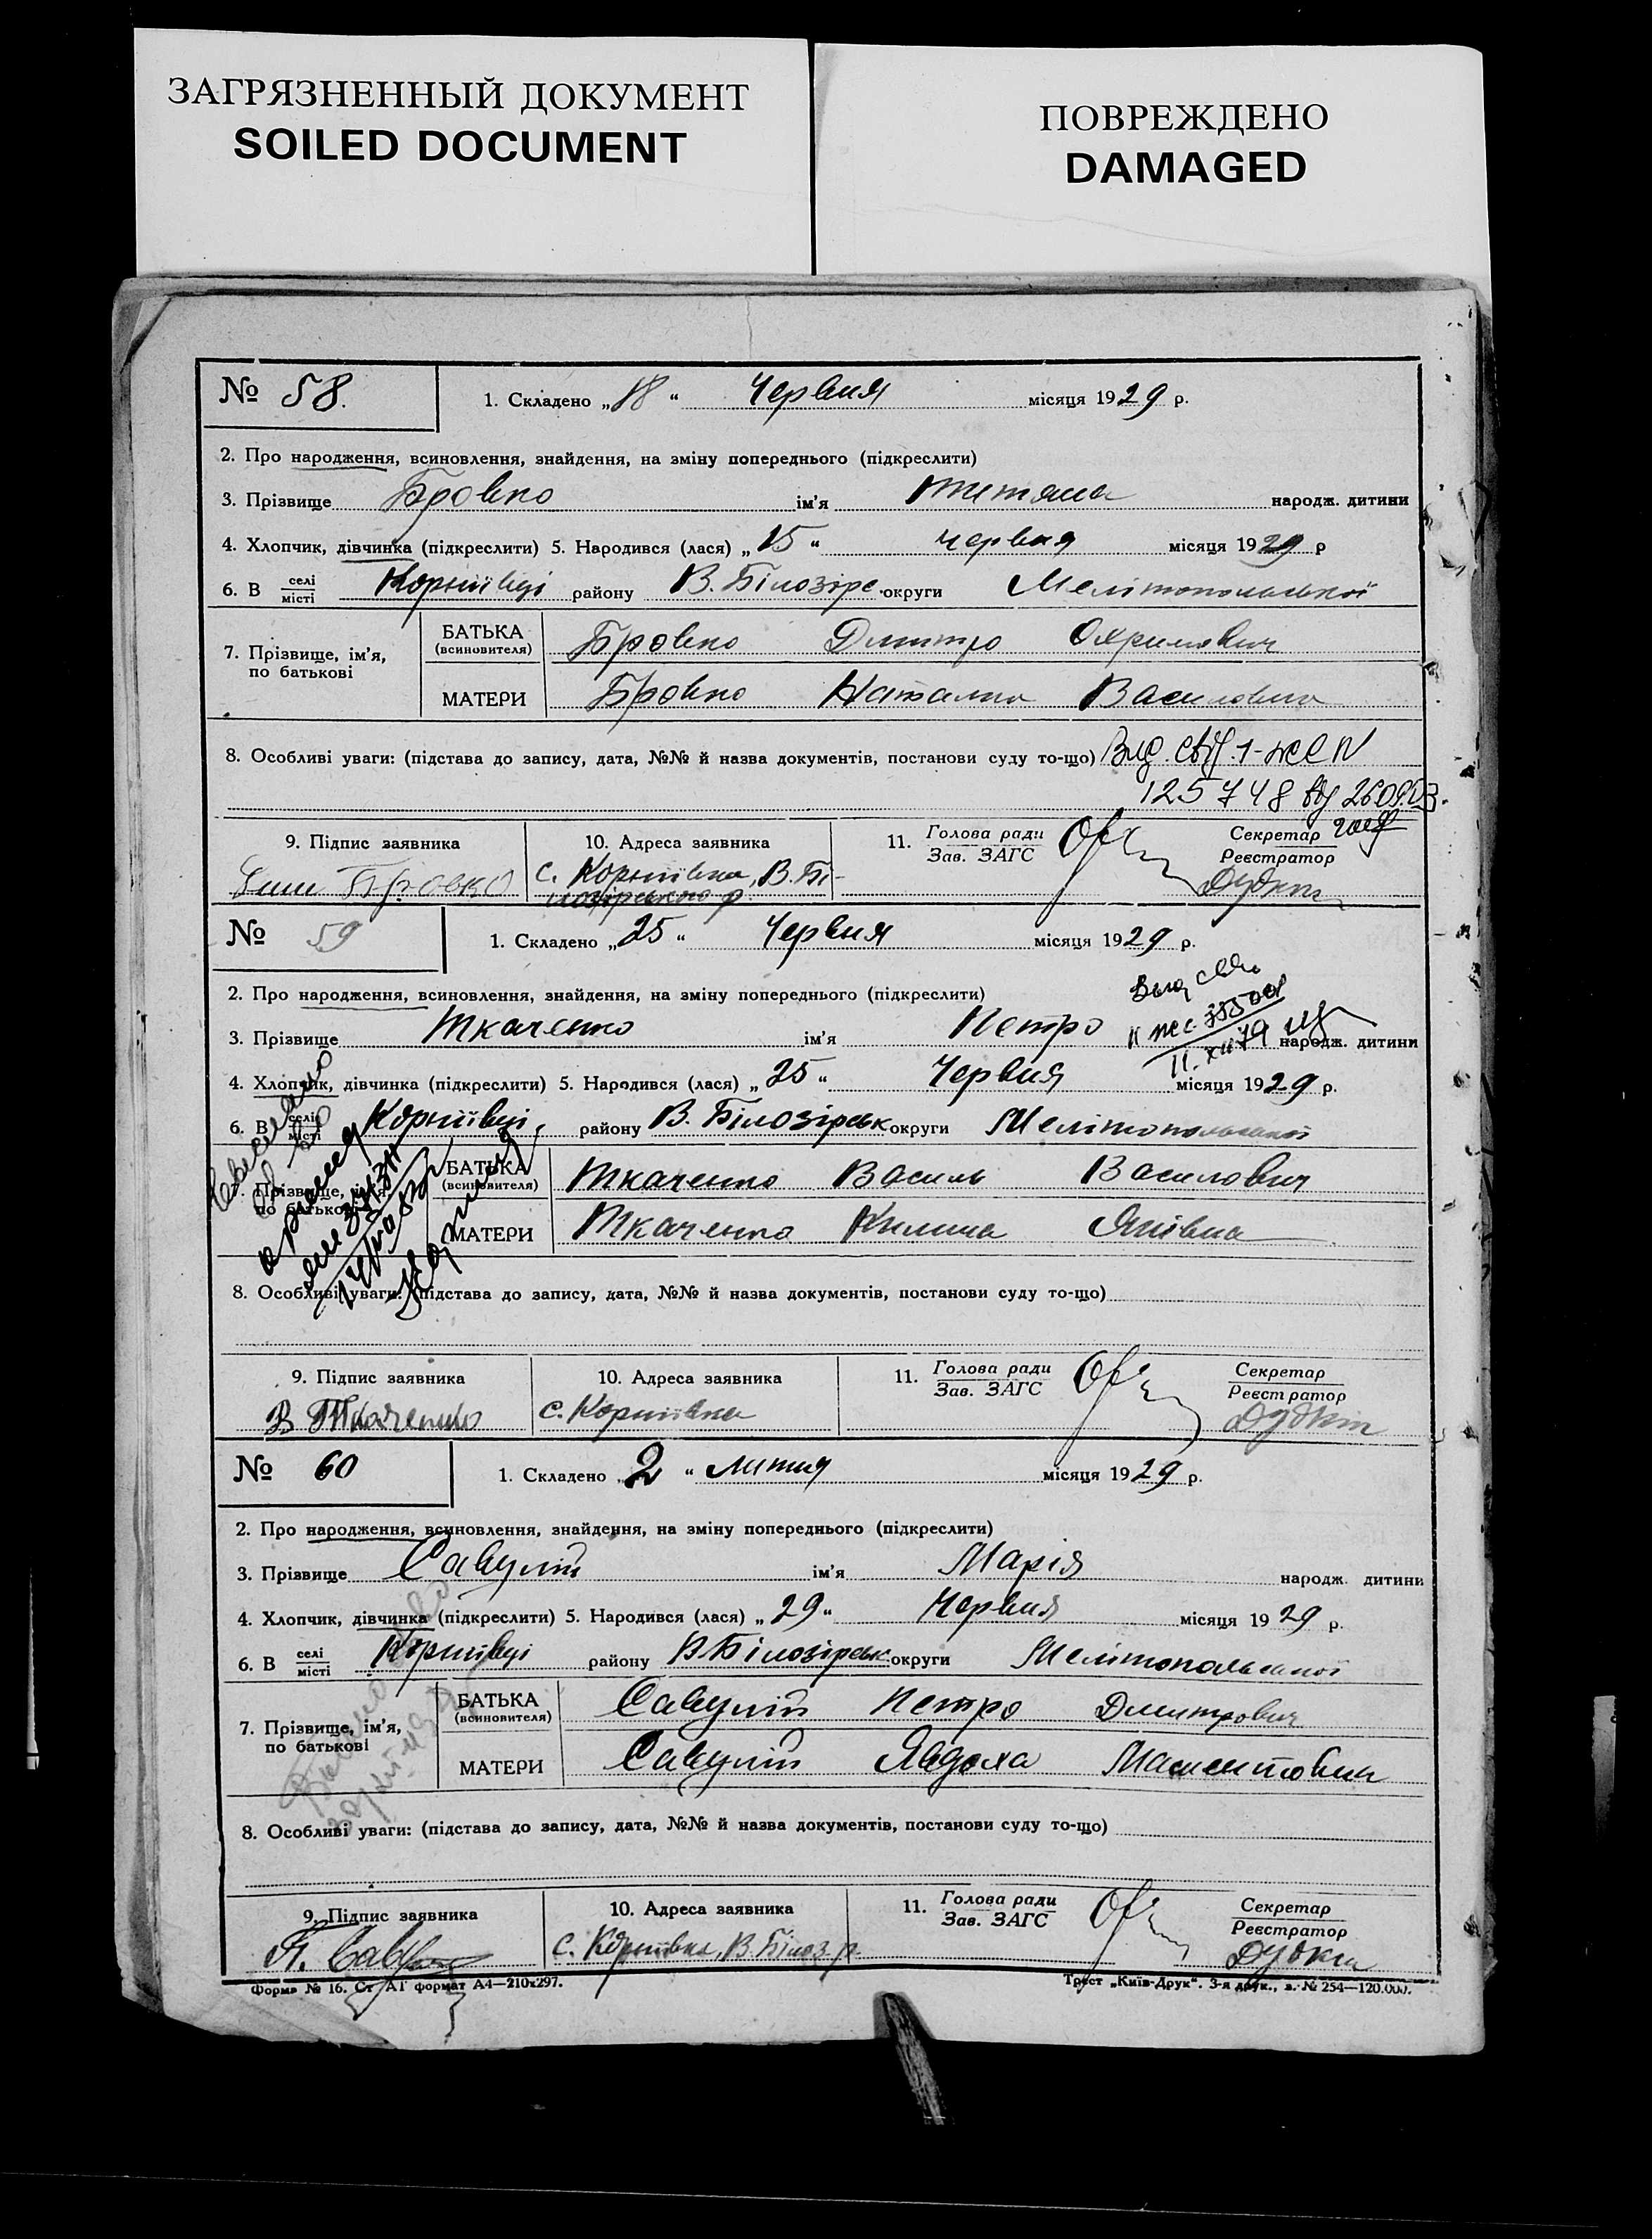 ЗАГРЯЗНЕННЫЙ ДОКУМЕНТ
SOILED DOCUMENT
ПОВРЕЖДЕНО
DAMAGED
№ 58. 1. Складено „18“ Червня місяця 1929 р.
2. Про народження, всиновлення, знайдення, на зміну попереднього (підкреслити)
3. Прізвище Бровко ім'я Титяна народж. дитини
4. Хлопчик, дівчинка (підкреслити) 5. Народився (лася) „15“ червня місяця 1929 р
6. В селі місті Корніївці району В. Білозірс. округи Мелітопольської
7. Прізвище, ім'я, по батькові
БАТЬКА (всиновителя) Бровко Дмитро Охримович
МАТЕРИ Бровко Наталка Василовна
8. Особливі уваги: (підстава до запису, дата, №№ й назва документів, постанови суду то-що) Вид. свід. 1-жс N
125748 від 26.09.03.
9. Підпис заявника 10. Адреса заявника 11. Голова ради Зав. ЗАГС Секретар Реєстратор
Бровко с. Корніївка, В. Бі-
лозірського р. Дудкін
№ 59 1. Складено „25“ Червня місяця 1929 р.
2. Про народження, всиновлення, знайдення, на зміну попереднього (підкреслити)
3. Прізвище Ткаченко ім'я Петро народж. дитини
4. Хлопчик, дівчинка (підкреслити) 5. Народився (лася) „25“ Червня місяця 1929 р.
6. В селі місті Корніївці, району В. Білозірськ округи Мелітопольської
7. Прізвище, ім'я, по батькові
БАТЬКА (всиновителя) Ткаченко Василь Василович
МАТЕРИ Ткаченко Килина Яківна
8. Особливі уваги: (підстава до запису, дата, №№ й назва документів, постанови суду то-що)
9. Підпис заявника 10. Адреса заявника 11. Голова ради Зав. ЗАГС Секретар Реєстратор
В Ткаченко с. Корніївка Дудкін
№ 60 1. Складено „2“ липня місяця 1929 р.
2. Про народження, всиновлення, знайдення, на зміну попереднього (підкреслити)
3. Прізвище Савулій ім'я Марія народж. дитини
4. Хлопчик, дівчинка (підкреслити) 5. Народився (лася) „29“ Червня місяця 1929 р.
6. В селі місті Корніївці району В-Білозірськ округи Мелітопольської
7. Прізвище, ім'я, по батькові
БАТЬКА (всиновителя) Савулій Петро Дмитрович
МАТЕРИ Савулій Явдоха
8. Особливі уваги: (підстава до запису, дата, №№ й назва документів, постанови суду то-що)
9. Підпис заявника 10. Адреса заявника 11. Голова ради Зав. ЗАГС Секретар Реєстратор
с. Корніївка, В. Білоз. р. Дудкін
Форма № 16. Ст АТ формат А4—210х297. Трест „Київ-Друк“. 3-я друк., з. № 254—120.000.